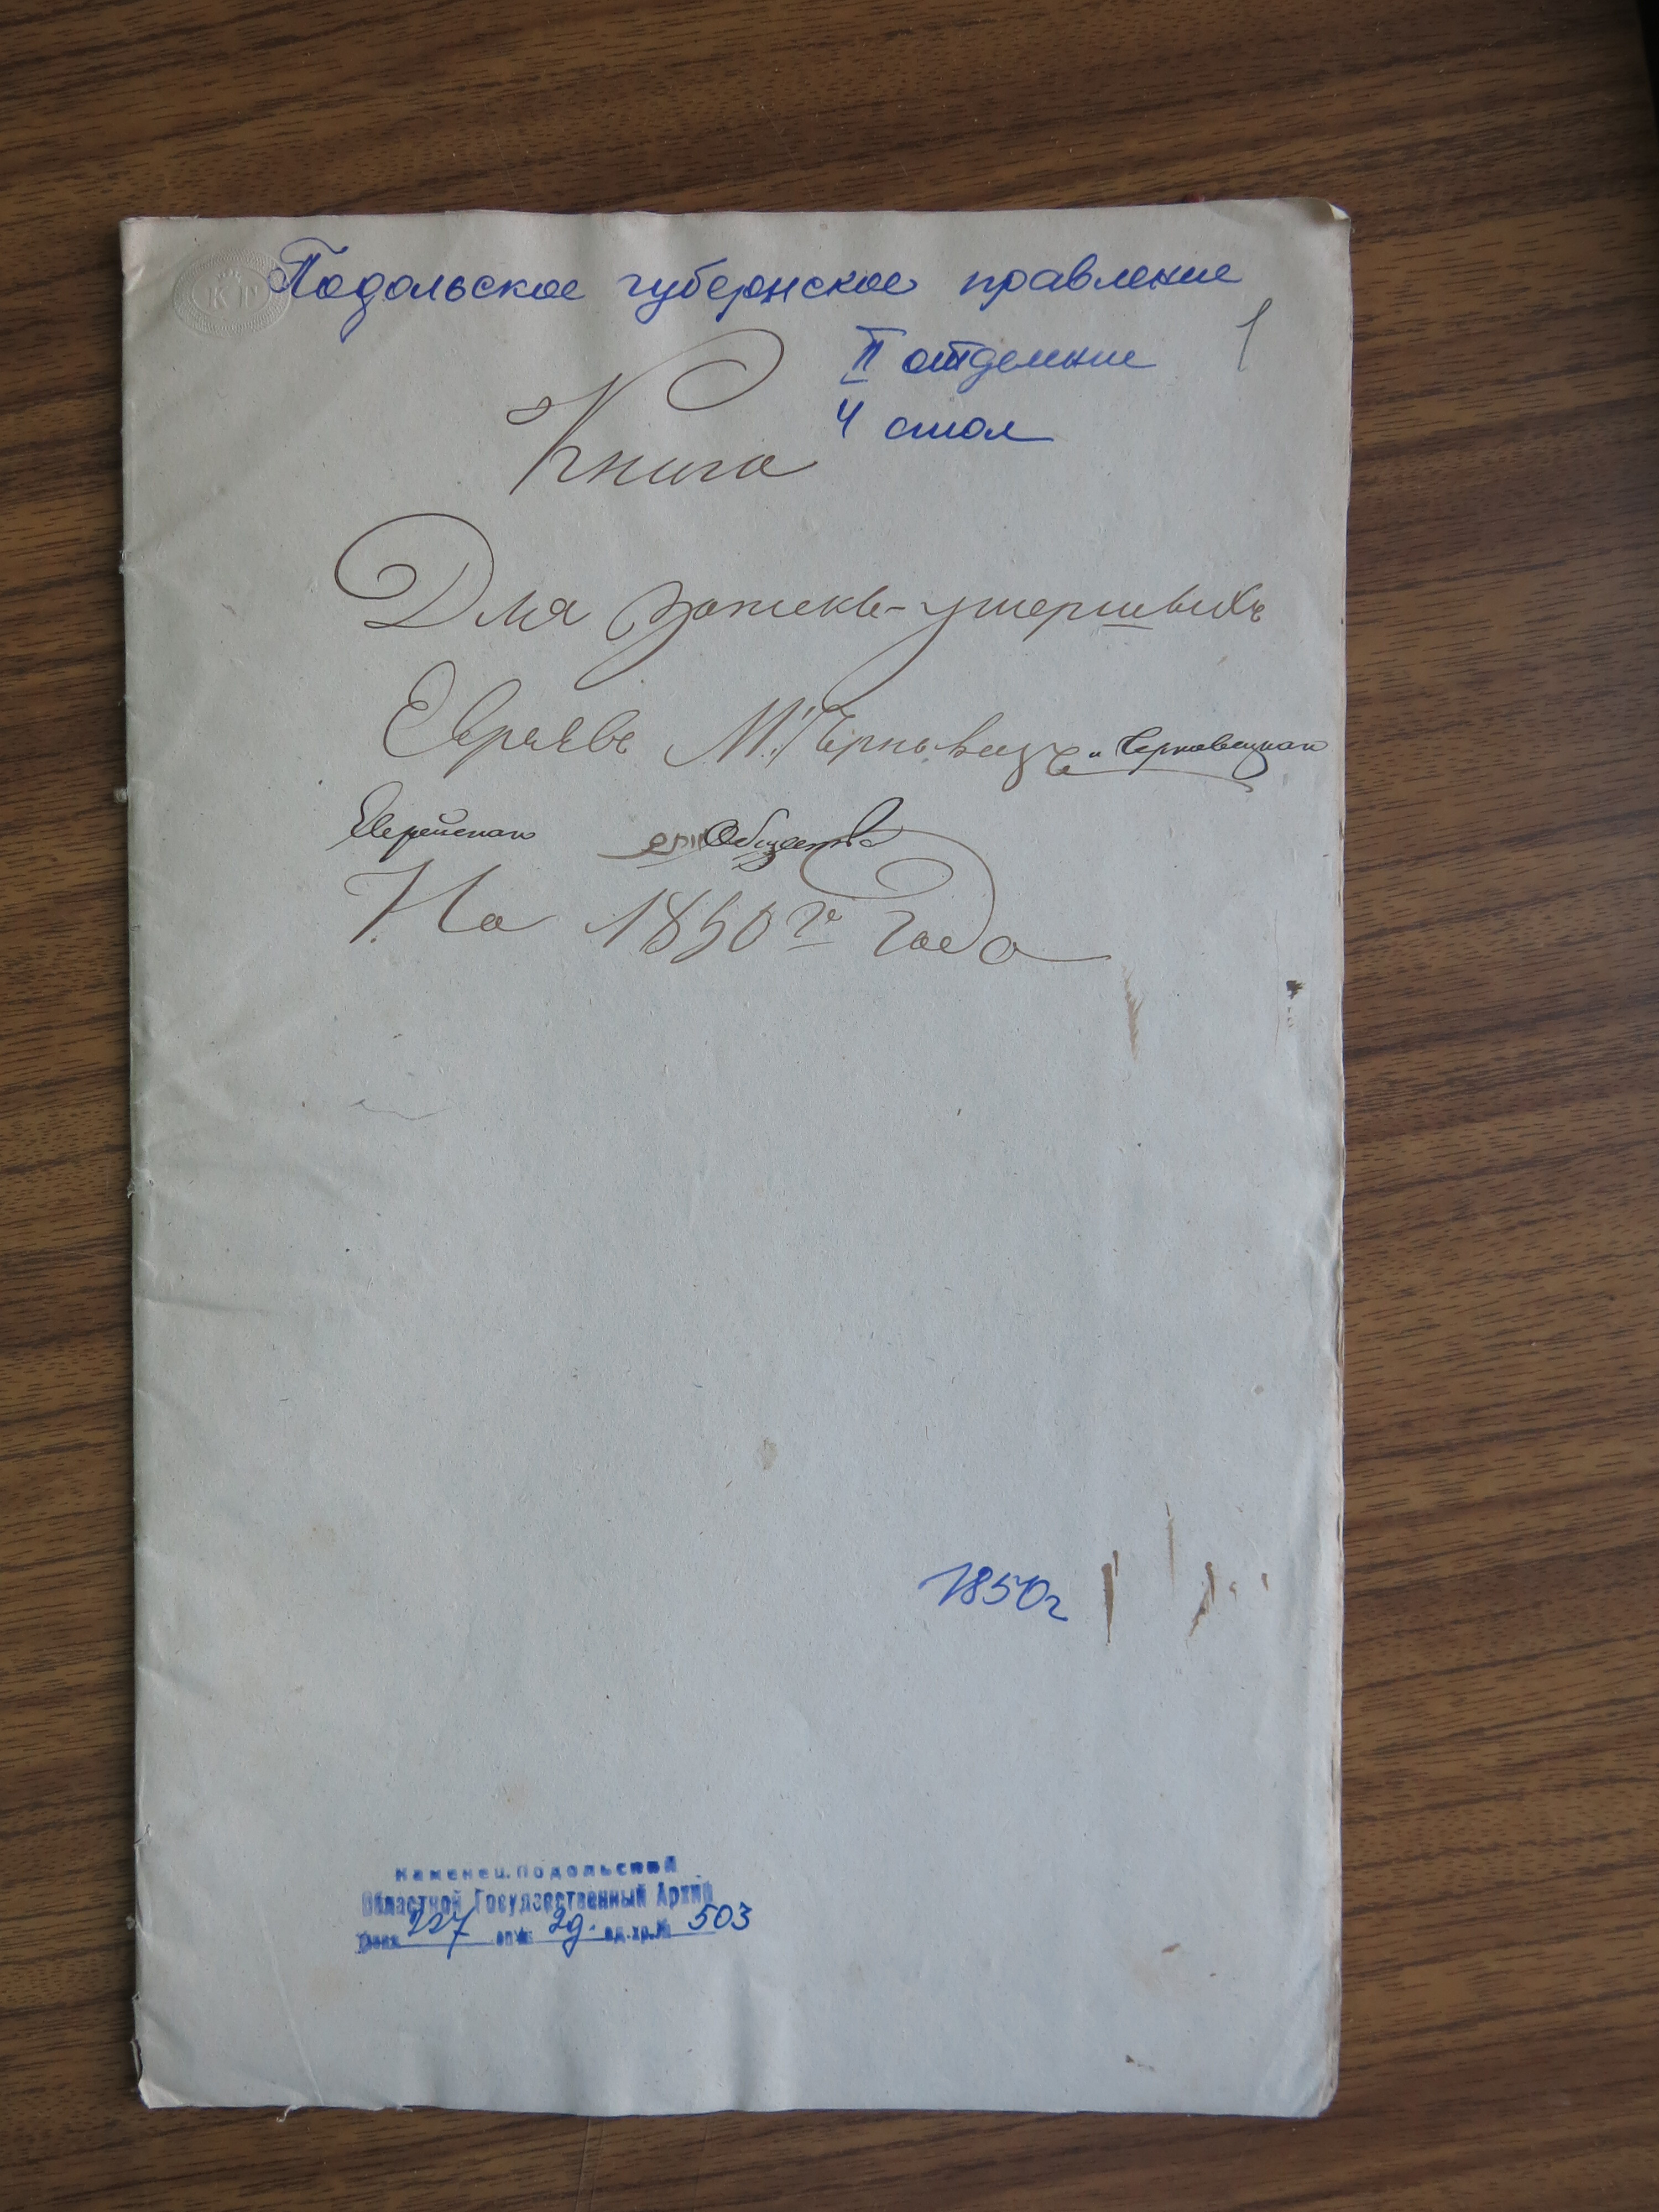 КГ
Подольское губернское правление
1
II отделение
4 стол
Книга
Для записки умершыхъ
Евреявъ М. Чернывецъ и Черновецкаго
Еврейскаго Общества
На 1850 го Года
1850г
Каменец. Подольский
Областной Государственный Архив
Фонд 227 оп № 2д. ед.хр.№ 503